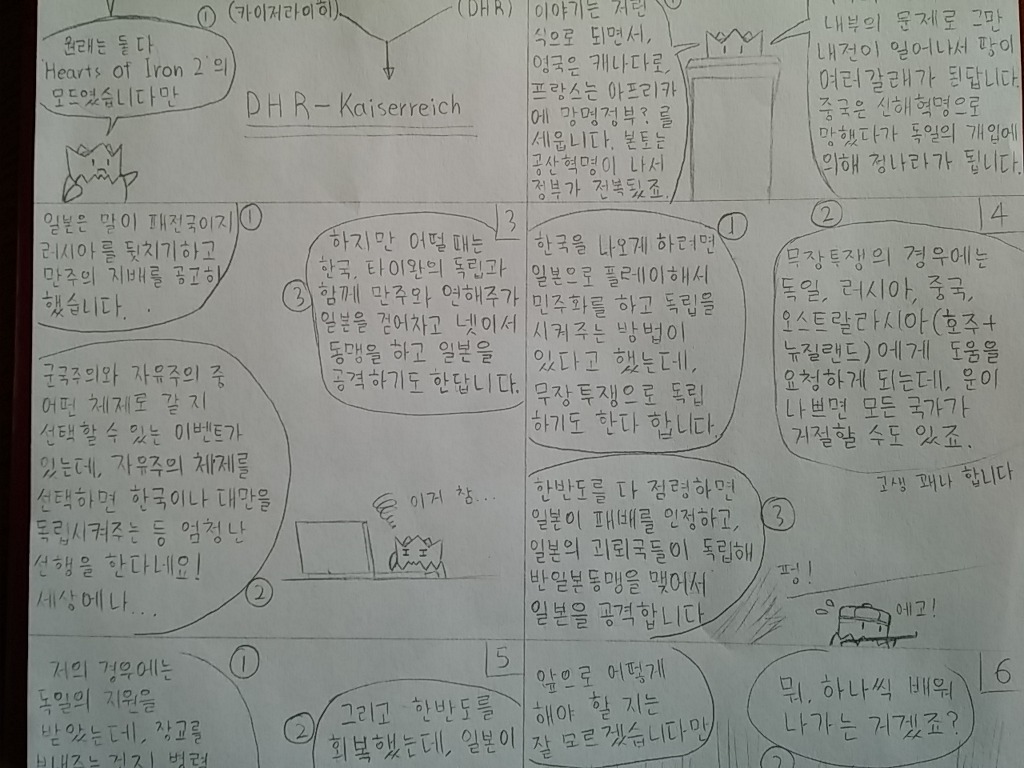 ①
(카이저라이히)
(DHR)
원래는 둘 다
'Hearts of Iron 2'의
모드였습니다만
DHR-Kaiserreich
이야기는 저런
식으로 되면서,
영국은 캐나다로,
프랑스는 아프리카
에 망명정부? 를
세웁니다. 본토는
공산혁명이 나서
정부가 전복됐죠.
내부의 문제로 그만
내전이 일어나서 땅이
여러 갈래가 된답니다.
중국은 신해혁명으로
망했다가 독일의 개입에
의해 청나라가 됩니다.
3
①
일본은 말이 패전국이지
러시아를 뒷치기하고
만주의 지배를 공고히
했습니다.
②
군국주의와 자유주의 중
어떤 체제로 갈 지
선택할 수 있는 이벤트가
있는데, 자유주의 체제를
선택하면 한국이나 대만을
독립시켜주는 등 엄청난
선행을 한다네요!
세상에나...
③
하지만 어떨 때는
한국, 타이완의 독립과
함께 만주와 연해주가
일본을 걷어차고 넷이서
동맹을 하고 일본을
공격하기도 한답니다.
이거 참...
4
①
한국을 나오게 하려면
일본으로 플레이해서
민주화를 하고 독립을
시켜주는 방법이
있다고 했는데,
무장투쟁으로 독립
하기도 한다 합니다.
②
무장투쟁의 경우에는
독일, 러시아, 중국,
오스트랄라시아(호주+
뉴질랜드)에게 도움을
요청하게 되는데, 운이
나쁘면 모든 국가가
거절할 수도 있죠.
고생 꽤나 합니다
③
한반도를 다 점령하면
일본이 패배를 인정하고,
일본의 괴뢰국들이 독립해
반일본동맹을 맺어서
일본을 공격합니다
펑!
에고!
5
①
저의 경우에는
독일의 지원을
받았는데, 장교를
②
그리고 한반도를
회복했는데, 일본이
6
앞으로 어떻게
해야 할 지는
잘 모르겠습니다만
뭐, 하나씩 배워
나가는 거겠죠?